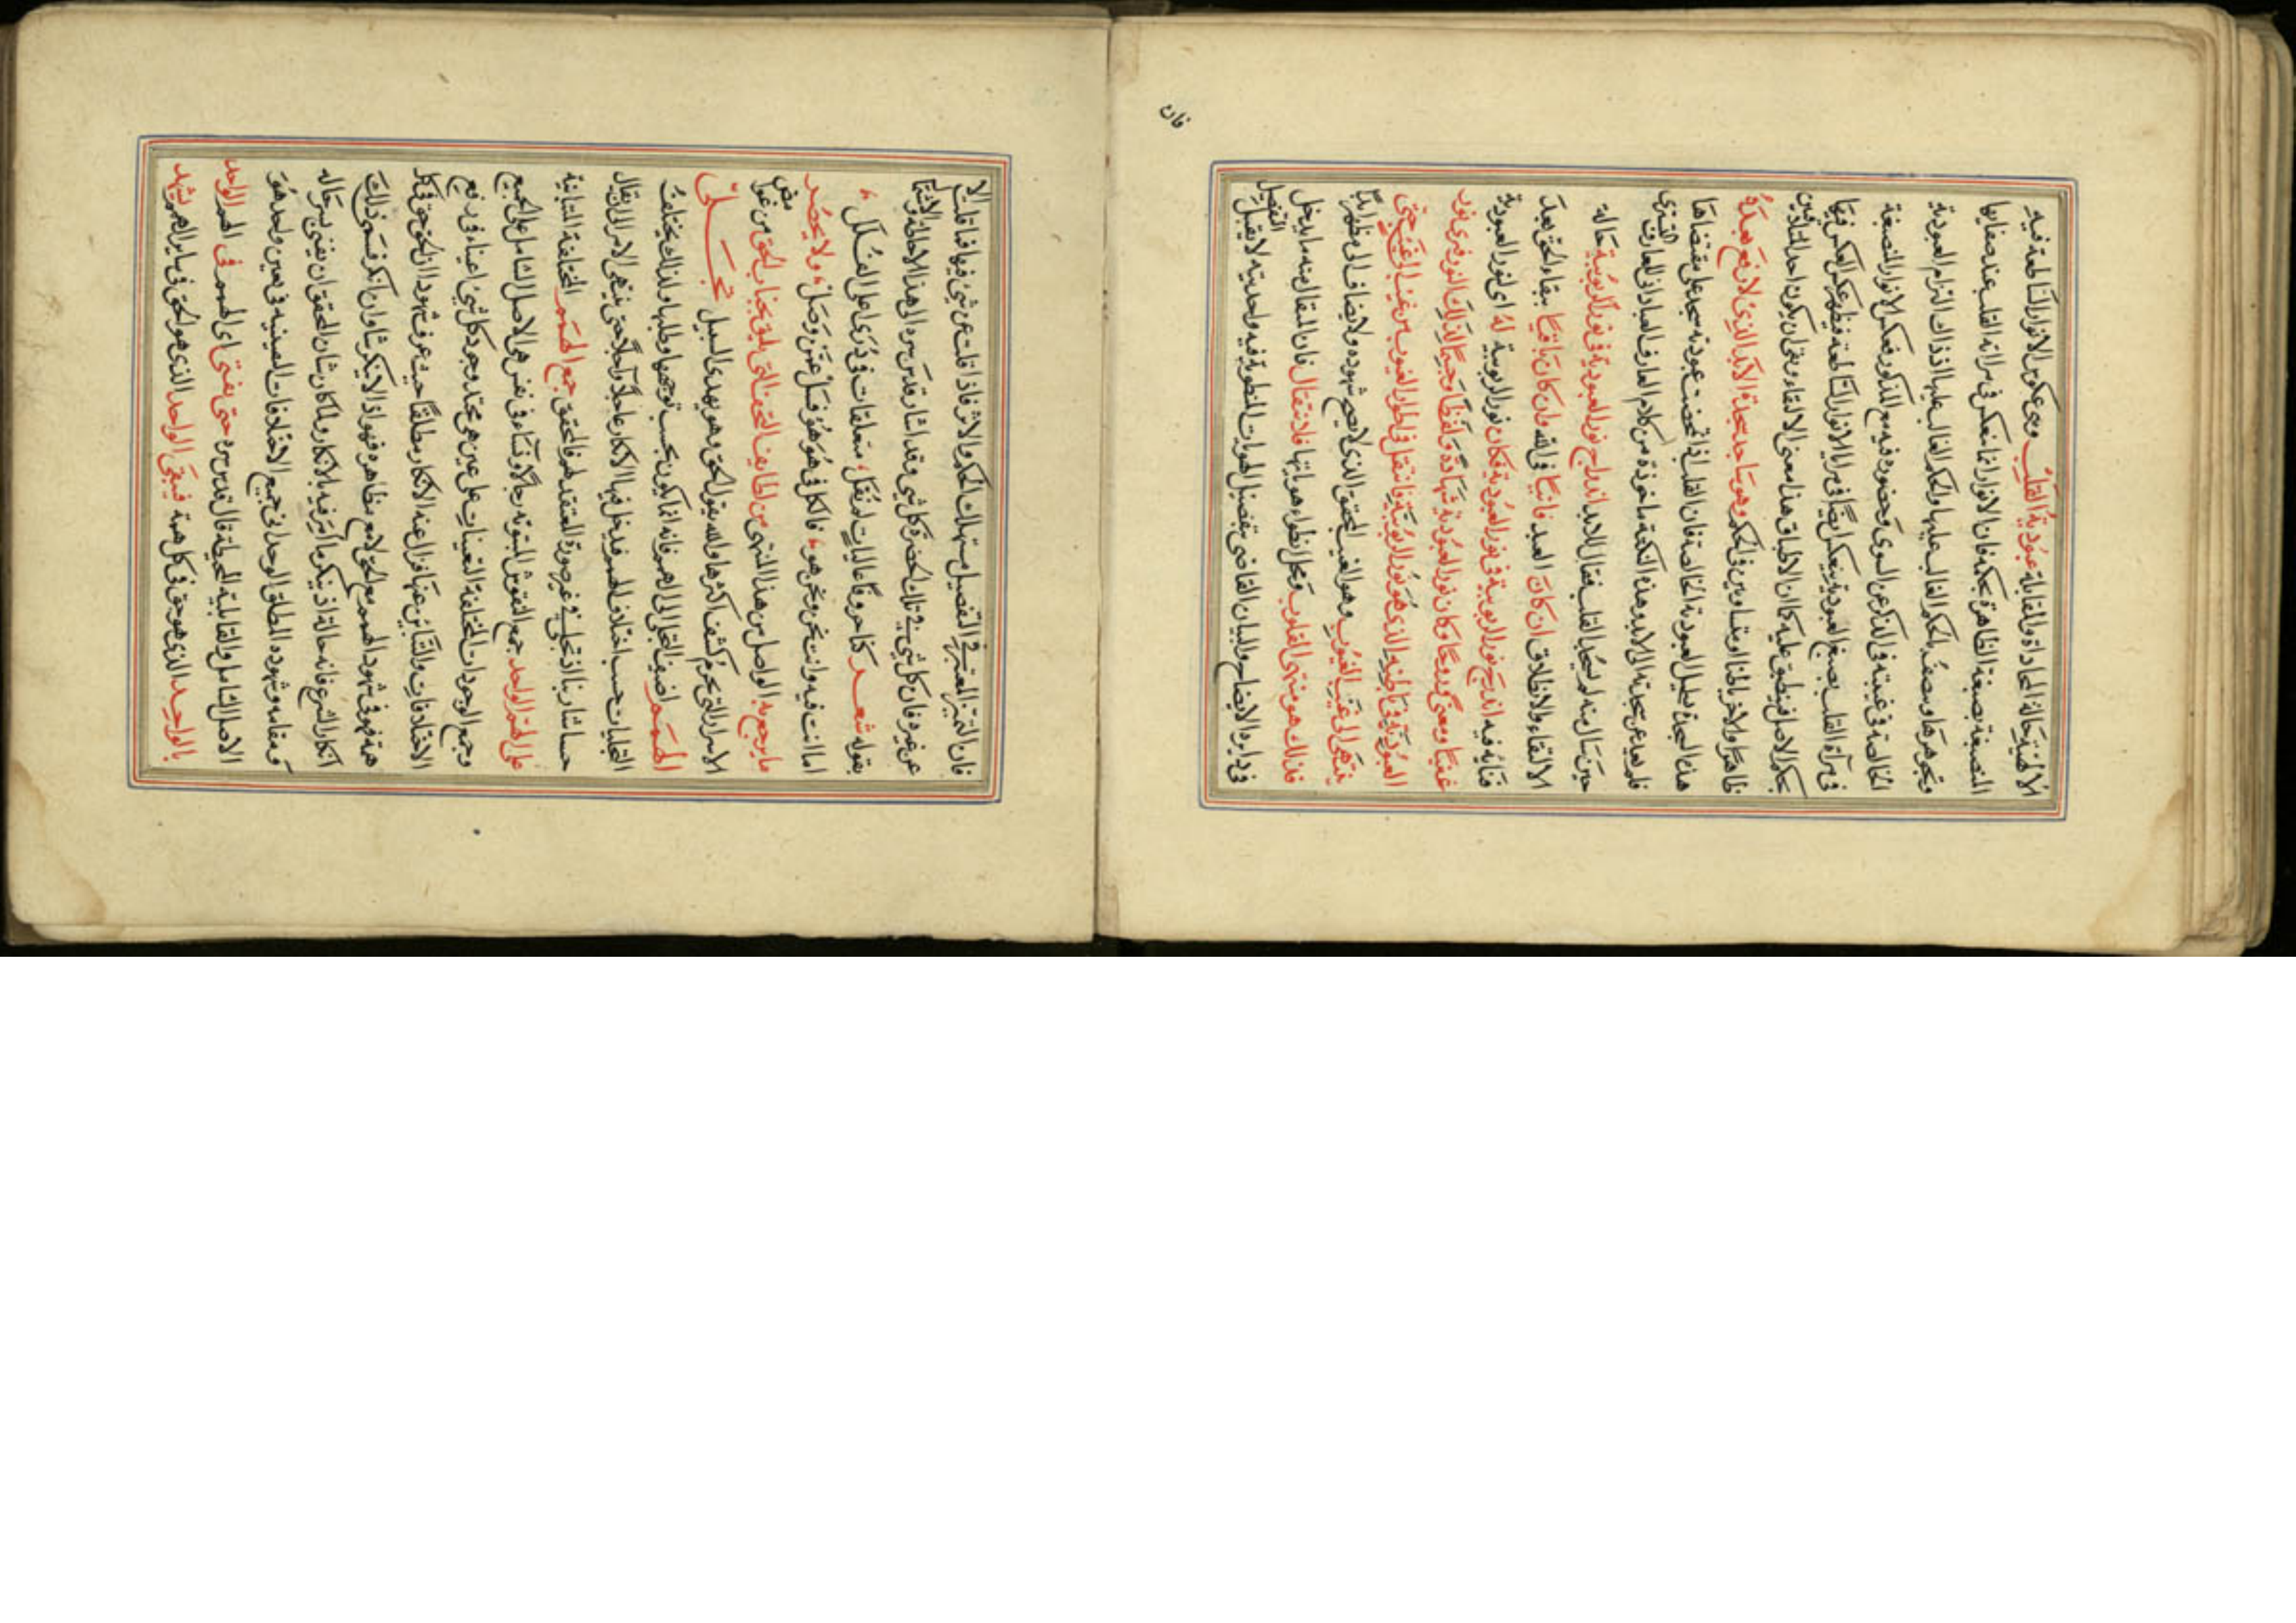 الالهية حالة المحاذاة والمقابلة عبودية القلب وهى عكوس الانوار الساطعة فيه
المنصبغة بصبغة الظاهرة بحكمه فان الانوار انما تنعكس فى مراته القلب عند صفايها
وتجوهرها وصفت الحكم الغالب عليها والحكم الغالب عليها اذ ذاك التزام العبودية
الخالصة فى غيبته فى الذكر عن السوى وحضوره فيه مع المذكور فعكس الانوار المنصبغة
فى مرآة القلب بصبغ العبودية ينعكس ايضا فى مرايا الانوار الساطعة فيظهر عكس العكس فيها
بحكم الاصل فينطبق عليه كان الانطباق هذا معنى الالتقاء وينبغى ان يكون احد المتلاقيين
ظاهرا والاخر باطنا او متساويين فى الحكم وهو ساجد سجدة الابد الذى لا رفع بعده
هذه السجدة تعطيل العبودية الخالصة فان القلب اذا تمحضت عبوديته سجد على مقتضاها
فلم يعد عن سجدته الى الابد وهذه النكتة ماخوذة من كلام العارف العبادانى للعارف التسترى
حين سال منه لم يسجد القلب فقال للابد اندراج نور العبودية فى نور الربوبية حالة
الالتقاء والانطلاق ان كان العبد فانيا فى الله وان كان باقيا ببقاء الحق بعد
فنائه فيه اندرج نور الربوبية فى نور العبودية فكان نور الربوبية له اى لنور العبودية
غيبا ومعنى وروحا وكان نور العبودية شهادة ولفظا وجسما لذلك النور فسرى نور
العبودية فى باطنه الذى هو نور الربوبية فانتقل فى اطوار الغيوب من غيب الى غيب حتى
ينتهى الى غيب الغيوب وهو الغيب المحقق الذى لا يصح شهوده ولا يضاف الى مظهر ابدا
فذلك هو منتهى القلوب ومحل انطواء هوياتها فلا تنقال فان المقال منه ما يدخل
فى دايرة الايضاح والبيان القاضى بتفصيل الهويات المنطوية فيه واحديته لا يقبل التفصيل
فان
فان التميز المعتبر فى التفصيل مستهلك الحكم والاثر فاذا قلت عن شئ فيها فما قلت الا
عن غيره فان كل شئ فى تلك الحضرة كل شئ وقد اشار قدس سره الى هذا الاحالة والاشتمال
بقوله شعر كنا حروفا عاليات لم نقل متعلقات فى ذرى اعلى القلل
اما انت فيه وانت نحن ونحن هو فالكل فى هو هو فسل عمن وصل ولا يحصر
ما يرجع به الواصل من هذا المنتهى من لطايف التحف التى تليق بجناب الحق من غوامض
الاسرار التى تحرم كشف اكثرها والله يقول الحق وهو يهدى السبيل تجلى
الهمم اضيف التجلى الى الهمم فانه انما يكون بحسب توجهها وطلبها ولذلك يختلف
التجليات حسب اختلاف الهمم فيدخل فيها الانكار عاجلا وآجلا حتى ينتهى الامر الى ان يقال
حسا شار بنا اذ تجلى فى غير صورة المعتقد لهم فالمحقق جمع الهمم المختلفة المتباينة
على الهم الواحد جمع النقوش المبثوثة رجالا ونساء فى نفس هى الاصل الشامل على الجميع
وجمع الوجودات المختلفة التعينات على عين هى محتد وجود كل شئ اعياء فى رفع
الاختلافات والتباين عنها فزال عنه الانكار مطلقا حيث عرف شهودا ان الحق حق فى كل
همة فهو فى شهود الهمم مع الحق لا مع مظاهره فهو اذا لا ينكر شيا وان انكر فسمى ذلك
انكار الشرع فانه حالة اذ ينكر ما امر فيه بالانكار ولما كان شان المحقق ان يفنى بحاله
ومقامه وشهوده المطلق الوحدانى جميع الاختلافات العينية فى عين واحد هو
الاصل الشامل والقابلية المحيطة قال قدس سره حتى يفنى اى الهمم فى الهم الواحد
بالواحد الذى هو حق فى كل همة فيبقى الواحد الذى هو الحق فى ساير الهمم يشهد